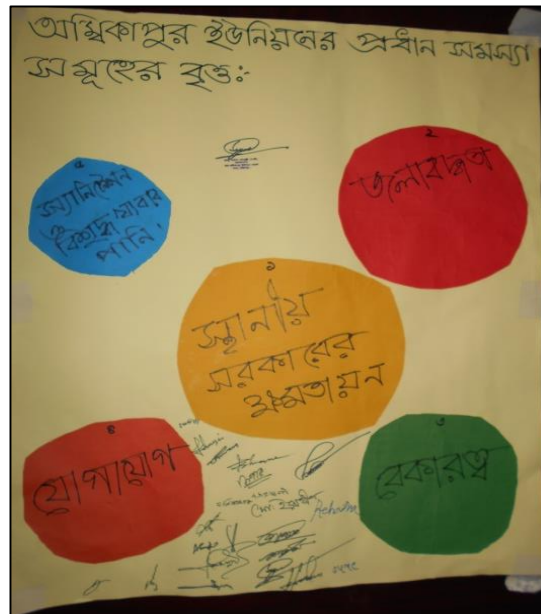 অম্বিকাপুর ইউনিয়নের প্রধান সমস্যা
সমূহের বৃত্তঃ
৫
স্যানিটেশন
ও
বিশুদ্ধ খাবার
পানি।
২
জলাবদ্ধতা
১
স্থানীয়
সরকারের
ক্ষমতায়ন
৪
যোগাযোগ
৩
বেকারত্ব